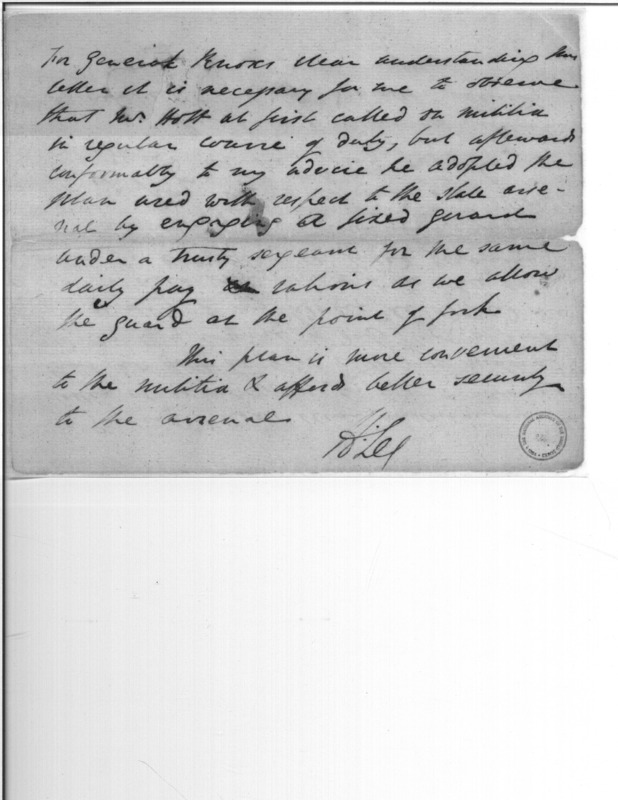 For General Knoxs clear understanding this
letter it is necessary for me to observe
that Mr. Hott at first called on militia
in regular course of duty, but afterwards
conformably to my advice he adopted the
plan used with respect to the state arse-
nal by engaging a fixed guard
under a trusty sergeant for the same
daily pay rations as we allow
the guard at the point of fork
This plan is more convenient
to the militia & affords better security
to the arsenal
H: Lee